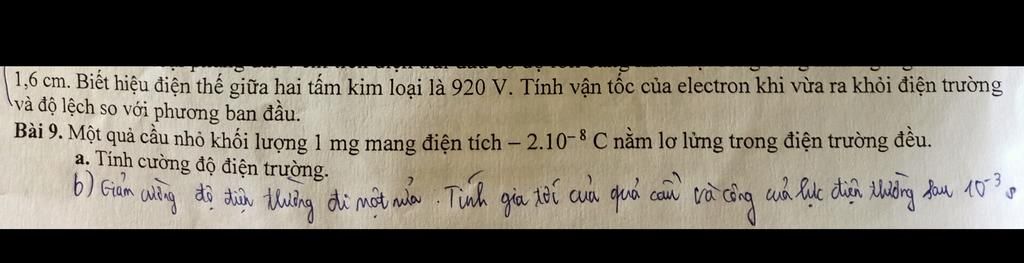 1,6 cm. Biết hiệu điện thế giữa hai tấm kim loại là 920 V. Tính vận tốc của electron khi vừa ra khỏi điện trường
và độ lệch so với phương ban đầu.
Bài 9. Một quả cầu nhỏ khối lượng 1 mg mang điện tích – 2.10⁻⁸ C nằm lơ lửng trong điện trường đều.
a. Tính cường độ điện trường.
b) Giảm cường độ điện trường đi một nửa. Tính gia tốc của quả cầu và công của lực điện trường sau 10⁻³ s